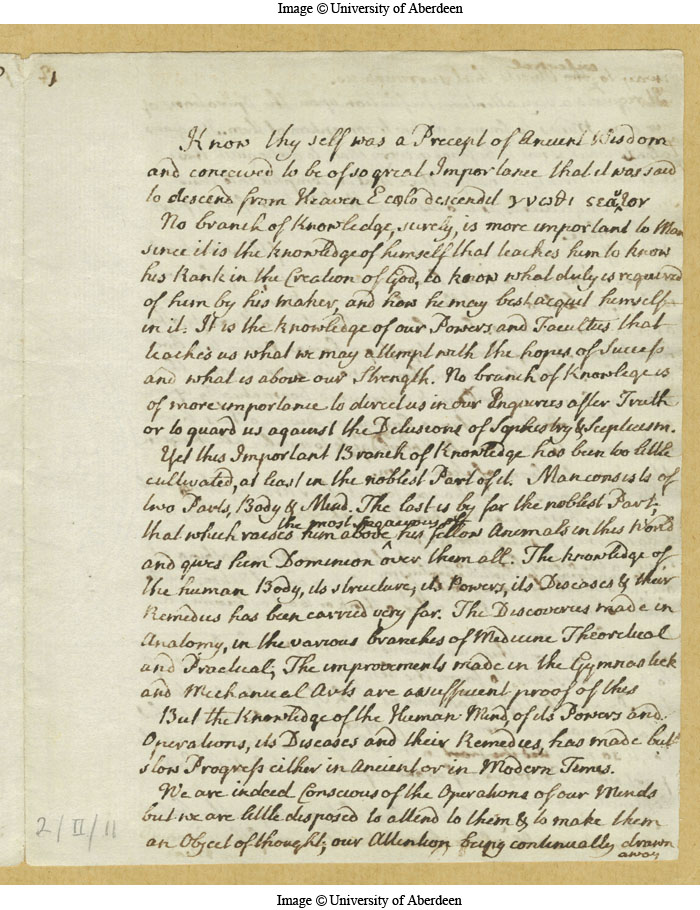 Image © University of Aberdeen
1
Know thy self was a Precept of Ancient Wisdom
and conceived to be of so great Importance that it was said
to descend from Heaven E cœlo descendit γνωθι σεαυτον
No branch of Knowledge, surely, is more important to Man
since it is the knowledge of himself that teaches him to know
his Rank in the Creation of God, to know what duty is required
of him by his maker, and how he may best acquit himself
in it. It is the knowledge of our Powers and Faculties that
teaches us what we may attempt with the hopes of Success
and what is above our Strength. No branch of Knowlege is
of more importance to direct us in our Enquiries after Truth
or to guard us against the Delusions of Sophistry & Scepticism.
Yet this Important Branch of Knowledge has been too little
cultivated, at least in the noblest Part of it. Man consists of
two Parts, Body & Mind. The last is by far the noblest Part,
the most sagacious of
that which raises him above his fellow Animals in this World
and gives him Dominion over them all. The knowledge of
the human Body, its structure, its Powers, its Diseases & their
Remedies has been carried very far. The Discoveries made in
Anatomy, in the various branches of Medicine Theoretical
and Practical; The improvements made in the Gymnastick
and Mechanical Arts are a sufficient proof of this
But the Knowledge of the Human Mind, of its Powers and
Operations, its Diseases and their Remedies, has made but
slow Progress either in Ancient or in Modern Times.
We are indeed Conscious of the Operations of our Minds
but we are little disposed to attend to them & to make them
an Object of thought; our Attention being continually drawn
away
2/II/11
Image © University of Aberdeen